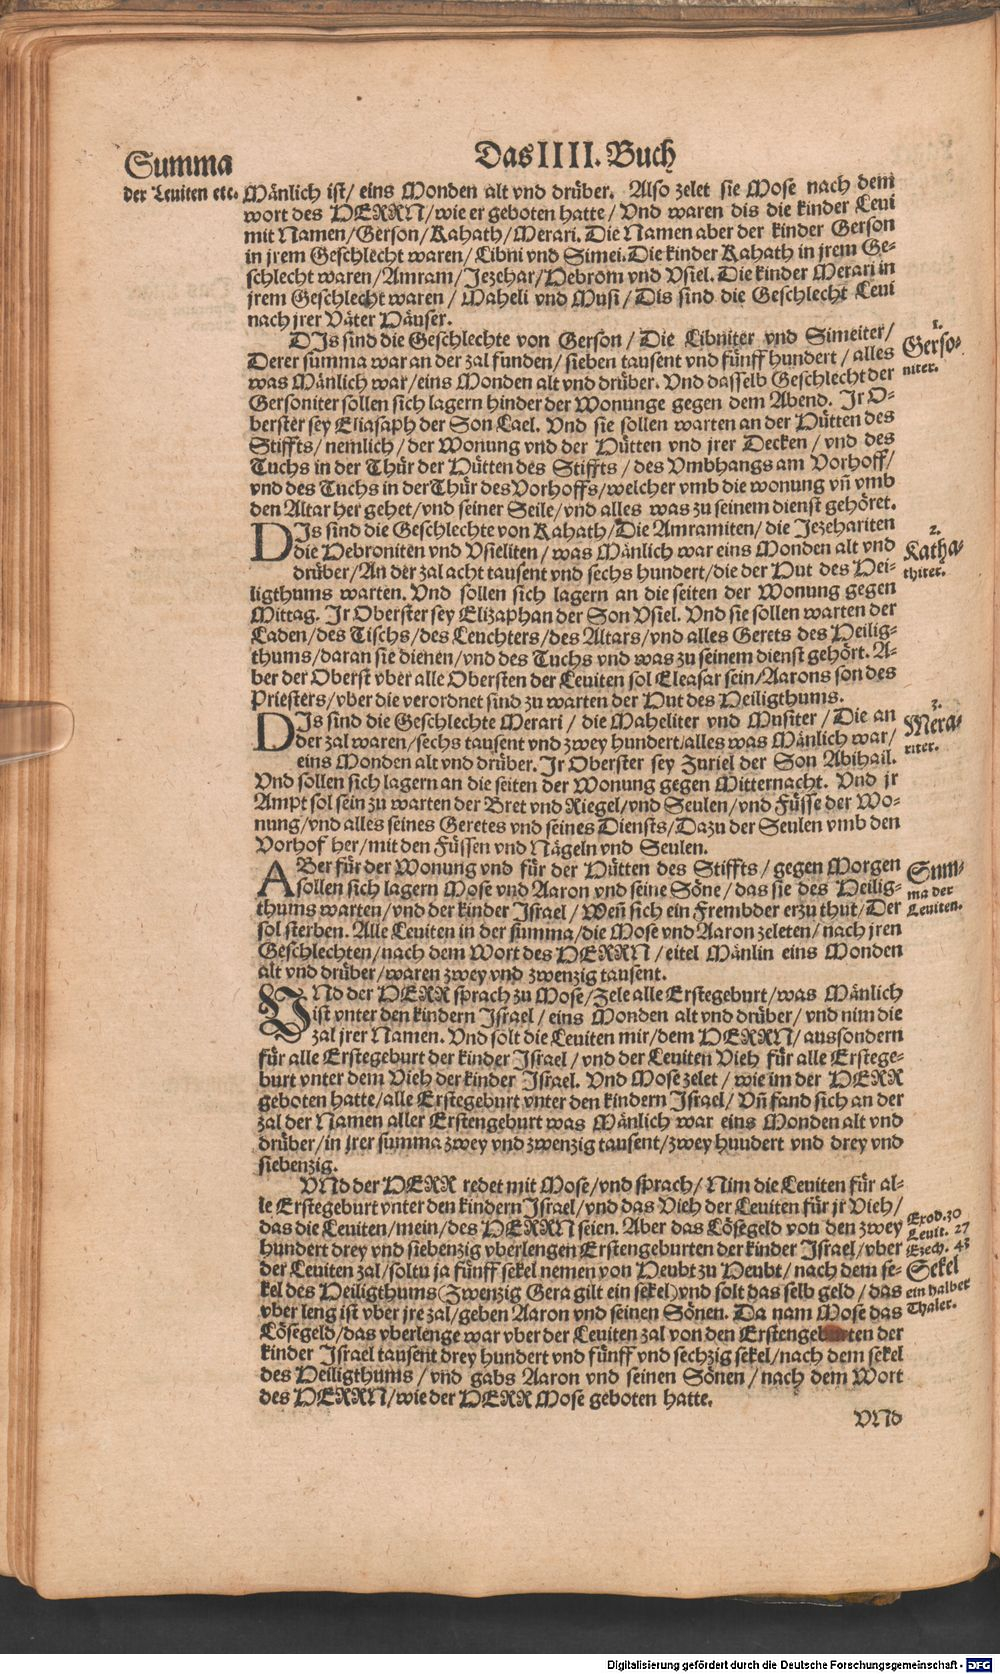 Das IIII. Buch
Summa
der Leuiten etc.
Mänlich ist/ eins Monden alt vnd drüber. Also zelet sie Mose nach dem
wort des HERRN/wie er geboten hatte/ Vnd waren dis die kinder Leui
mit Namen/Gerson/Kahath/Merari. Die Namen aber der kinder Gerson
in jrem Geschlecht waren/ Libni vnd Simei. Die kinder Kahath in jrem Ge-
schlecht waren/Amram/Jezehar/Hebrom vnd Vsiel. Die kinder Merari in
jrem Geschlecht waren / Maheli vnd Musi / Dis sind die Geschlecht Leui
nach jrer Väter Häuser.
DJs sind die Geschlechte von Gerson / Die Libniter vnd Simeiter/
Derer summa war an der zal funden/ sieben tausent vnd fünff hundert / alles
was Mänlich war/eins Monden alt vnd drüber. Vnd dasselb Geschlecht der
Gersoniter sollen sich lagern hinder der Wonunge gegen dem Abend. Jr O-
berster sey Eliasaph der Son Lael. Vnd sie sollen warten an der Hütten des
Stiffts/ nemlich / der Wonung vnd der Hütten vnd jrer Decken / vnd des
Tuchs in der Thür der Hütten des Stiffts / des Vmbhangs am Vorhoff/
vnd des Tuchs in der Thür des Vorhoffs/welcher vmb die wonung vn̄ vmb
den Altar her gehet/vnd seiner Seile/vnd alles was zu seinem dienst gehöret.
1.
Gerso-
niter.
DJs sind die Geschlechte von Kahath/Die Amramiten/ die Jezehariten
die Hebroniten vnd Vsieliten / was Mänlich war eins Monden alt vnd
drüber/An der zal acht tausent vnd sechs hundert/die der Hut des Hei-
ligthums warten. Vnd sollen sich lagern an die seiten der Wonung gegen
Mittag. Jr Oberster sey Elizaphan der Son Vsiel. Vnd sie sollen warten der
Laden/des Tischs/des Leuchters/des Altars/vnd alles Gerets des Heilig-
thums/daran sie dienen/vnd des Tuchs vnd was zu seinem dienst gehört. A-
ber der Oberst vber alle Obersten der Leuiten sol Eleasar sein/Aarons son des
Priesters/vber die verordnet sind zu warten der Hut des Heiligthums.
2.
Katha-
thiter.
DJs sind die Geschlechte Merari / die Maheliter vnd Musiter / Die an
der zal waren/sechs tausent vnd zwey hundert/alles was Mänlich war/
eins Monden alt vnd drüber. Jr Oberster sey Zuriel der Son Abihail.
Vnd sollen sich lagern an die seiten der Wonung gegen Mitternacht. Vnd jr
Ampt sol sein zu warten der Bret vnd Riegel/vnd Seulen/vnd Füsse der Wo-
nung/vnd alles seines Geretes vnd seines Diensts/Dazu der Seulen vmb den
Vorhof her/mit den Füssen vnd Nägeln vnd Seulen.
3.
Mera-
riter.
ABer für der Wonung vnd für der Hütten des Stiffts / gegen Morgen
sollen sich lagern Mose vnd Aaron vnd seine Söne / das sie des Heilig-
thums warten/vnd der kinder Jsrael / Wen̄ sich ein Frembder erzu thut/Der
sol sterben. Alle Leuiten in der summa/die Mose vnd Aaron zeleten/ nach jren
Geschlechten/nach dem Wort des HERRN / eitel Mänlin eins Monden
alt vnd drüber/waren zwey vnd zwenzig tausent.
Sum-
ma der
Leuiten.
VNd der HERR sprach zu Mose/Zele alle Erstegeburt/was Mänlich
ist vnter den kindern Jsrael / eins Monden alt vnd drüber/ vnd nim die
zal jrer Namen. Vnd solt die Leuiten mir/dem HERRN/ aussondern
für alle Erstegeburt der kinder Jsrael / vnd der Leuiten Vieh für alle Erstege-
burt vnter dem Vieh der kinder Jsrael. Vnd Mose zelet / wie im der HERR
geboten hatte/alle Erstegeburt vnter den kindern Jsrael/ Vn̄ fand sich an der
zal der Namen aller Erstengeburt was Mänlich war eins Monden alt vnd
drüber/in jrer summa zwey vnd zwenzig tausent/zwey hundert vnd drey vnd
siebenzig.
VNd der HERR redet mit Mose/vnd sprach/ Nim die Leuiten für al-
le Erstegeburt vnter den kindern Jsrael/vnd das Vieh der Leuiten für jr Vieh/
das die Leuiten/mein/des HERRN seien. Aber das Lösegeld von den zwey
hundert drey vnd siebenzig vberlengen Erstengeburten der kinder Jsrael/vber
der Leuiten zal/soltu ja fünff sekel nemen von Heubt zu Heubt/ nach dem se-
kel des Heiligthums (Zwenzig Gera gilt ein sekel) vnd solt das selb geld / das
vber leng ist vber jre zal/geben Aaron vnd seinen Sönen. Da nam Mose das
Lösegeld/das vberlenge war vber der Leuiten zal von den Erstengeburten der
kinder Jsrael tausent drey hundert vnd fünff vnd sechzig sekel/nach dem sekel
des Heiligthums / vnd gabs Aaron vnd seinen Sönen / nach dem Wort
des HERRN/wie der HERR Mose geboten hatte.
Exod. 30
Leuit. 27
Ezech. 45
Sekel
ein halber
Thaler.
VNd
Digitalisierung gefördert durch die Deutsche Forschungsgemeinschaft - DFG